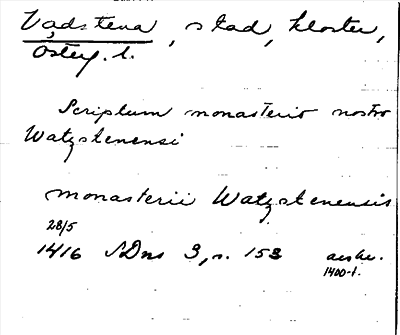 Vadstena, stad, kloster,
Österg. l.
Scriptum monasterio nostro
Watzstenensi
monasterii Watzstenensis
28/5
1416 SDns 3, s. 153 avskr.
1400-t.